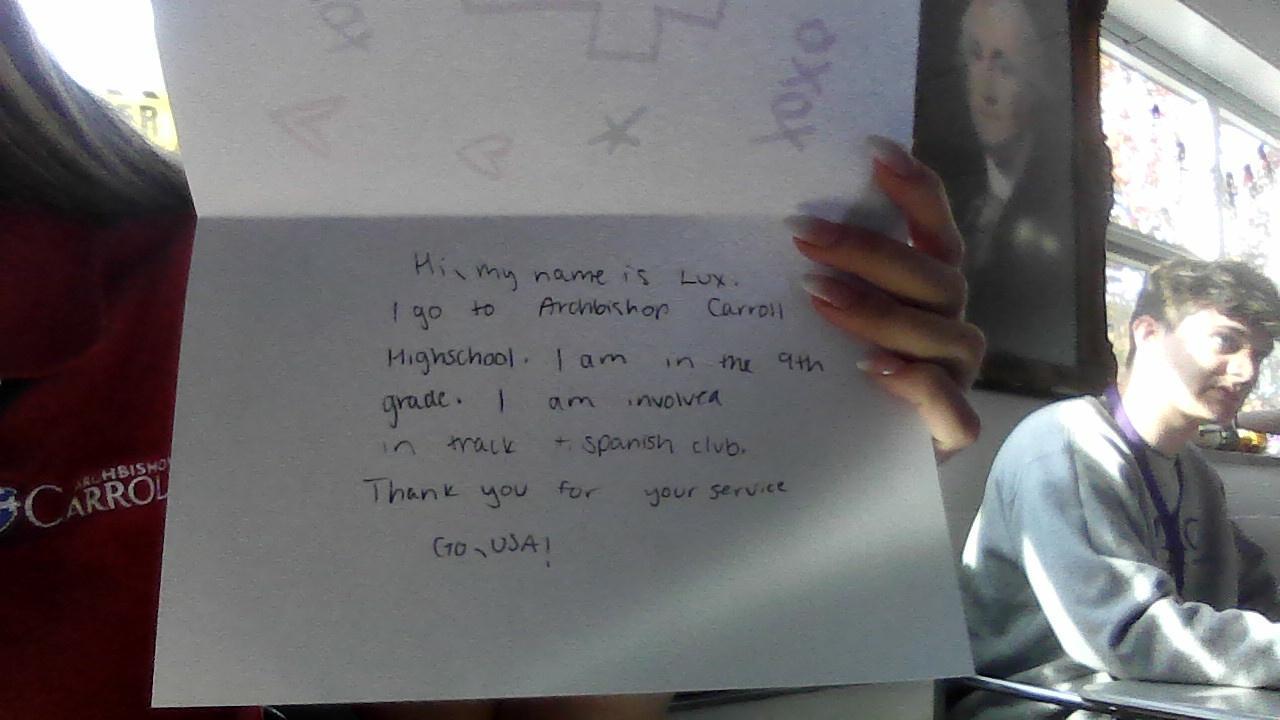 xox
xoxo
ER
Hi, my name is Lux.
I go to Archbishop Carroll
Highschool. I am in the 9th
grade. I am involved
in track + spanish club.
Thank you for your service
Go, USA!
ARCHBISHO
CARROL